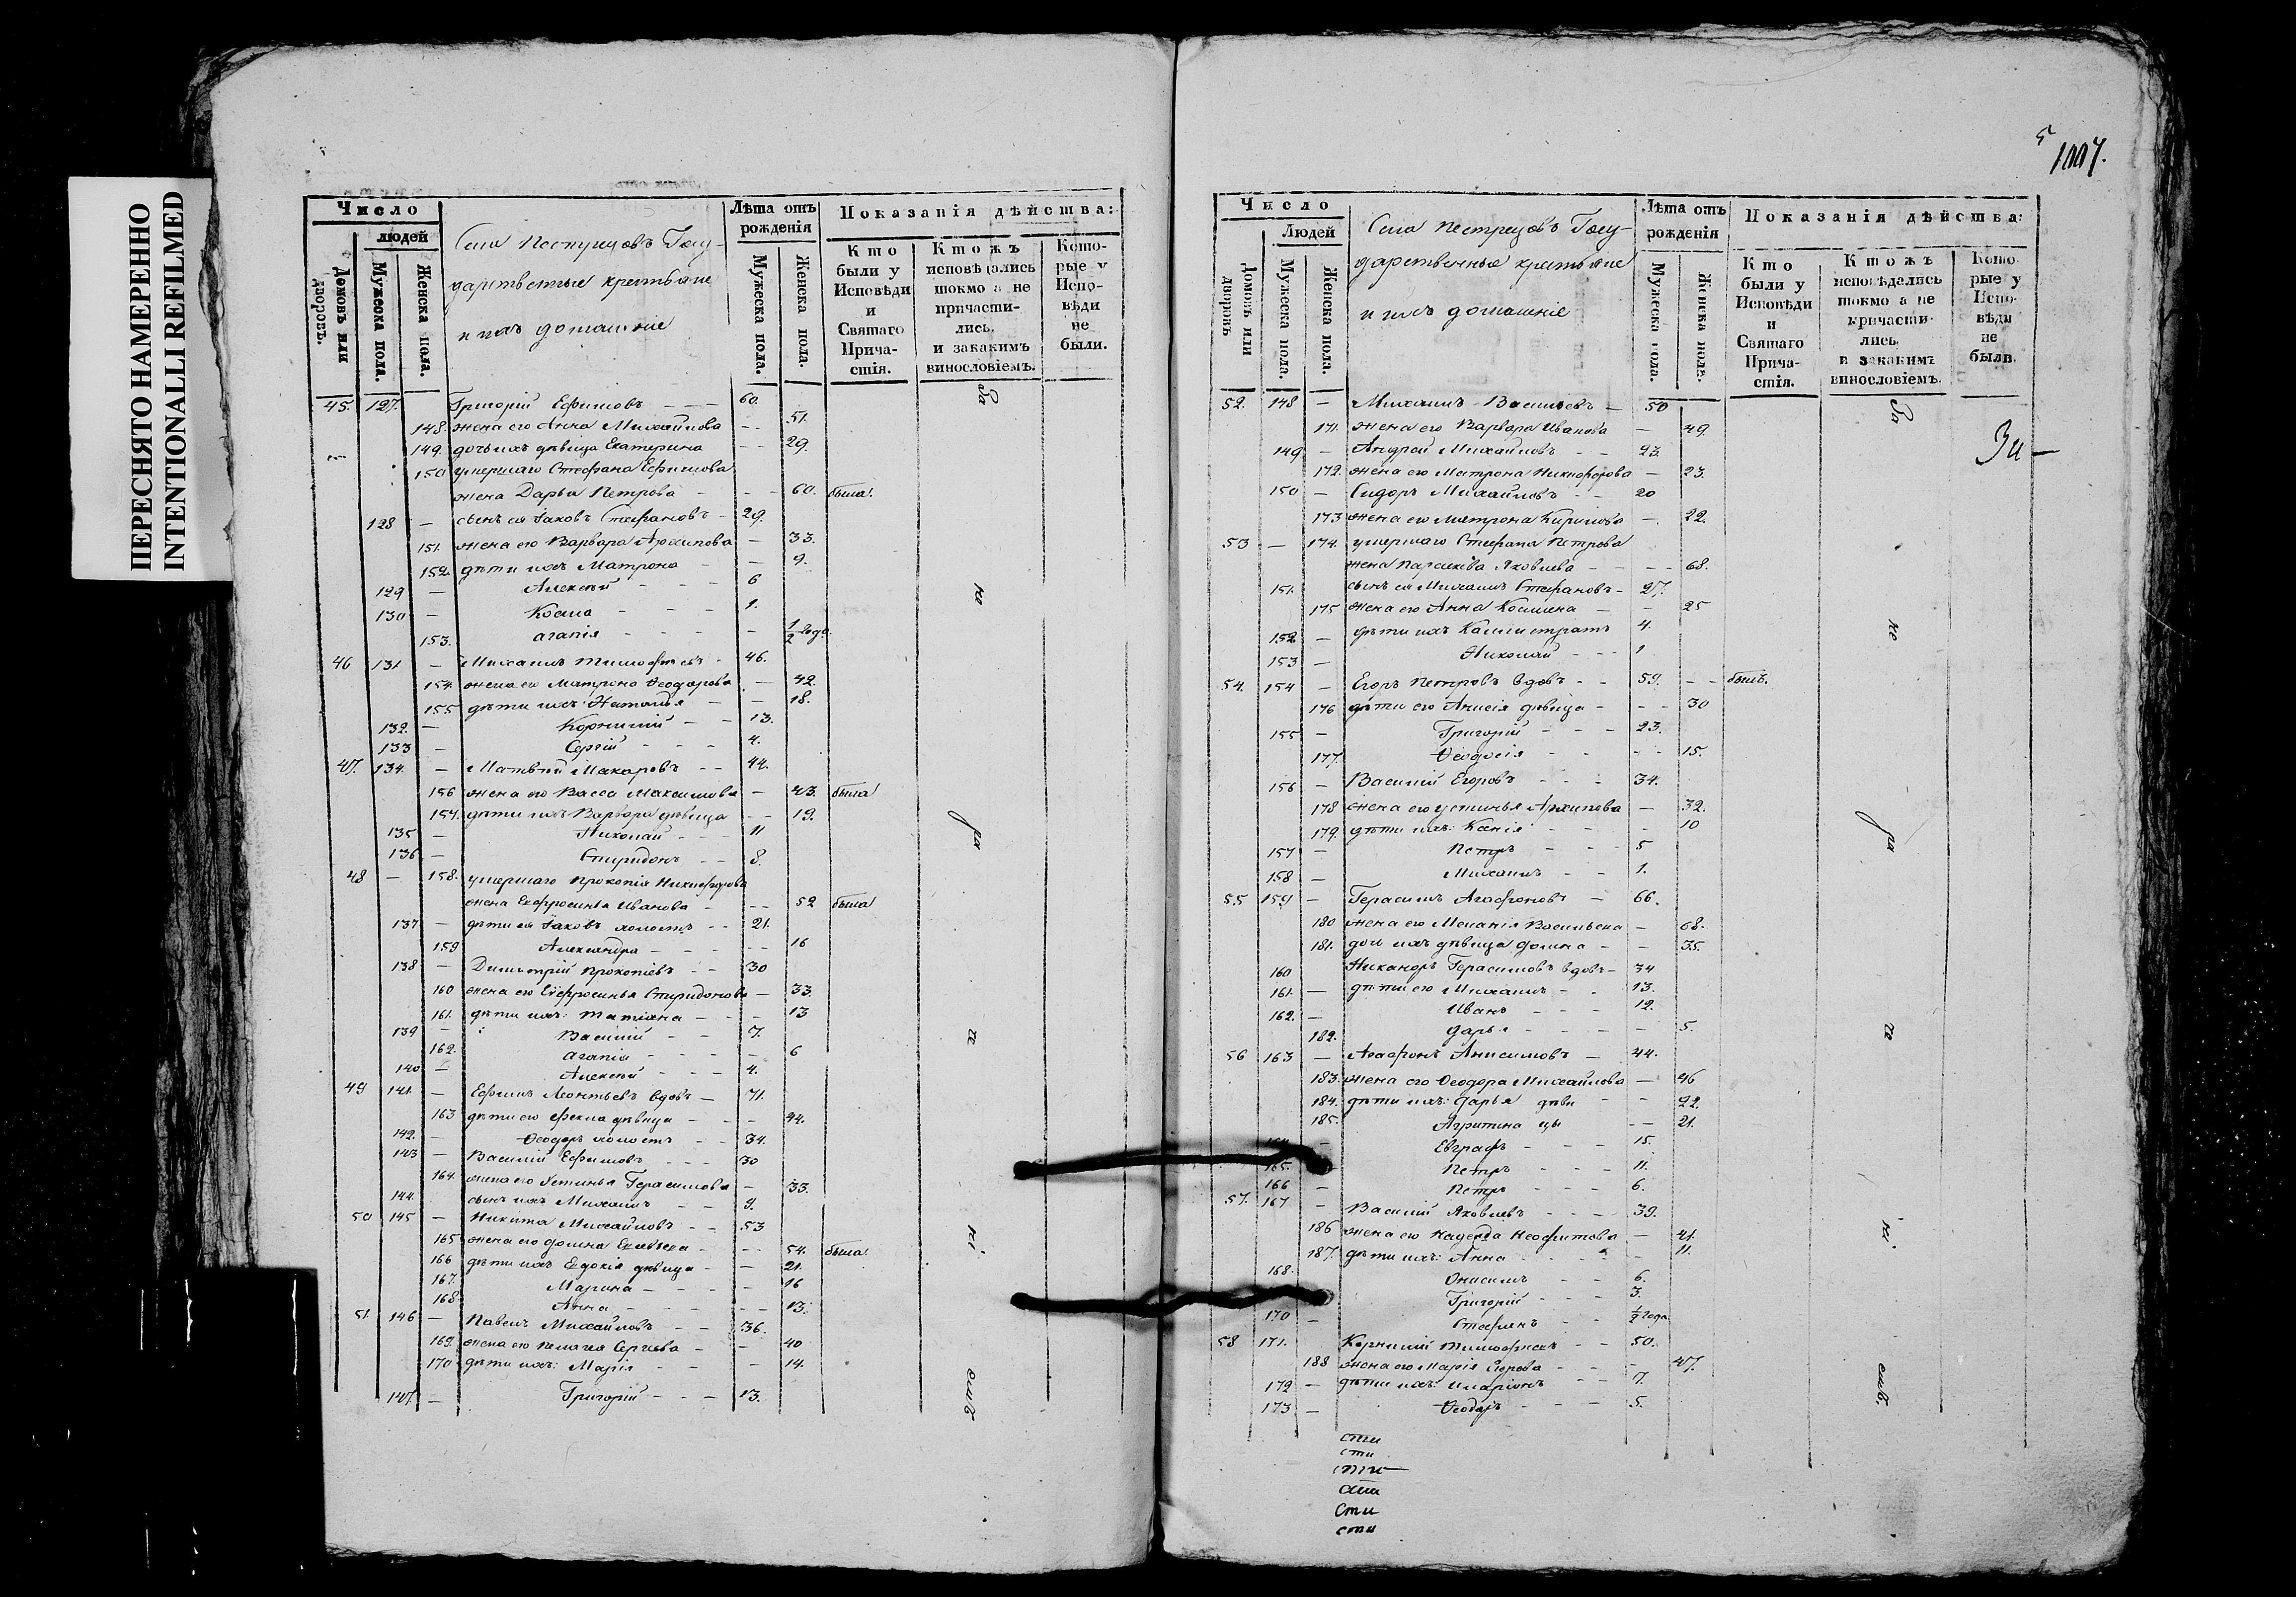 ПЕРЕСНЯТО НАМЕРЕННО
INTENTIONALLI REFILMED
Число
людей
Домовъ или дворовъ.
Мужеска пола.
Женска пола.
Села Пестрецовъ Госу-
дарственные крестьяне
и ихъ домашніе
Лѣта отъ рожденія
Мужеска пола.
Женска пола.
Показанія дѣйства:
Кто были у Исповѣди и Святаго Прича-стія.
Ктожъ исповѣдались токмо а не причасти-лись. и закакимъ винословіемъ.
Кото-рые у Испо-вѣди не были.
45. 127. Григорій Ефимовъ - - - 60.
148. жена его Анна Михайлова - - 51.
149. дочь ихъ дѣвица Екатерина - - 29.
150 умершаго Стефана Ефимова
жена Дарья Петрова - - - 60. была.
128 - сынъ ея Іаковъ Стефановъ - 29.
151. жена его Варвара Архипова - 33.
152. дѣти ихъ Матрона - - 9.
129 - Алексѣй - - - 6
130 - Косма - - - 1.
153. Агапія - - - 1/2 года.
46 131 - Михаилъ Тимофеевъ - 46.
154. жена его Матрона Ѳеодорова - 42.
155 дѣти ихъ Наталія - - 18.
132. - Корнилій - - 13.
133 - Сергій - - - 4.
47. 134. - Матвѣй Макаровъ - - 44.
156 жена его Васса Максимова - 43. была
157. дѣти ихъ Варвара дѣвица - - 19.
135 - Николай - - 11
136 - Спиридонъ - - 8.
48 - 158. умершаго Прокопія Никифорова
жена Евфросинья Иванова - - - 52 была
137 - дѣти ея Іаковъ холостъ - - 21.
159 Александра - - - - 16
138 - Димитрій Прокопіевъ - - 30
160 жена его Евфросинья Спиридонова - 33.
161. дѣти ихъ: Татіана - - - 13
139 - Василій - - 7.
162. Агапія - - - 6
140 - Алексѣй - - - 4.
49 141. - Ефимъ Леонтьевъ вдовъ - 71.
163 дѣти его Ѳекла дѣвица - - 44.
142. - Ѳеодоръ холостъ - - 34.
143 - Василій Ефимовъ - - - 30
164. жена его Устинья Герасимова - 33.
144. сынъ ихъ Михаилъ - - 9.
50 145 - Никита Михайловъ - - 53
165 жена его Домна - - - 54. была
166 дѣти ихъ Евдокія дѣвица - - 21.
167. Марина - - - - 16
168 Анна - - - - - 13.
51. 146 - Павелъ Михайловъ - - 36.
169. жена его Пелагея Сергеева - - 40
170 дѣти ихъ: Марія - - - 14.
147. - Григорій - - - 13.
За
не
ра
че
ні
емъ
5
1007.
Число
Людей
Домовъ или дворовъ
Мужеска пола.
Женска пола.
Села Пестрецовъ Госу-
дарственные крестьяне
и ихъ домашніе
Лѣта отъ рожденія
Мужеска пола.
Женска пола.
Показанія дѣйства:
Кто были у Исповѣди и Святаго Прича-стія.
Ктожъ исповѣдались токмо а не причасти-лись. и закакимъ винословіемъ.
Кото-рые у Испо-вѣди не были.
52. 148 - Михаилъ Васильевъ - 50
171. жена его Варвара Иванова - 49.
149 - Андрей Михайловъ - - 23.
172. жена его Матрона Никифорова - 23.
150 - Сидоръ Михайловъ - - 20
173 жена его Матрона Кирилова - 22.
53 - 174. умершаго Стефана Петрова
жена Параскева Яковлева - - - 68.
151. сынъ ея Михаилъ Стефановъ - 27.
175 жена его Анна Космина - - 25
152 - дѣти ихъ Калистратъ 4.
153 - Николай - - - 1
54. 154 - Егоръ Петровъ вдовъ - - 59. - - былъ.
176 дѣти его Анисія дѣвица - - - 30
155 - Григорій - - - 23.
177. Ѳеодосія - - - - 15.
156 - Василій Егоровъ - - - 34.
178 жена его Устинья Архипова - 32.
179. дѣти ихъ: Ксенія - - - 10
157 - Петръ - - - 5
158 - Михаилъ - - 1.
55 159 - Герасимъ Агафоновъ - 66.
180 жена его Меланія Васильева - 68.
181. дочь ихъ дѣвица Домна - - 35.
160 Никаноръ Герасимовъ вдовъ - 34
161. - дѣти его Михаилъ - - 13.
162. - Иванъ - - - 12.
182. Дарья - - - - 5.
56 163 - Агафонъ Анисимовъ - 44.
183. жена его Ѳеодора Михайлова - 46
184. дѣти ихъ: Дарья дѣви - - 22.
185. Агрипина цы - - 21.
- Евграфъ - - - 15.
165. Петръ - - - 11.
166 - Петръ - - - 6.
57. 167 - Василій Яковлевъ - - - 39.
186 жена его Надежда Неофитова - 41.
187. дѣти ихъ: Анна - - - 11.
168. Онисимъ - - 6.
Григорій - - - 3.
170 - Стефанъ - - 1/2 года
58 171. Корнилій Тимофеевъ - - 50.
188 жена его Марія - - - 47.
172 - дѣти ихъ: Иларіонъ - - 7.
173 - Ѳеодоръ - - - 5.
За
не
ра
че
ні
емъ.
сти
сти
сти
сти
сти